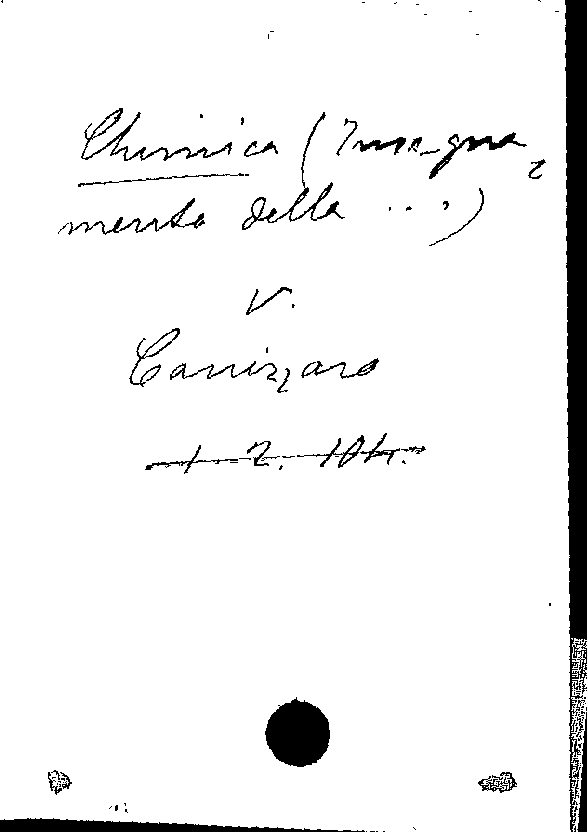 Chimica (Insegna=
mento della ...)
V.
Cannizzaro
1 2. 104.